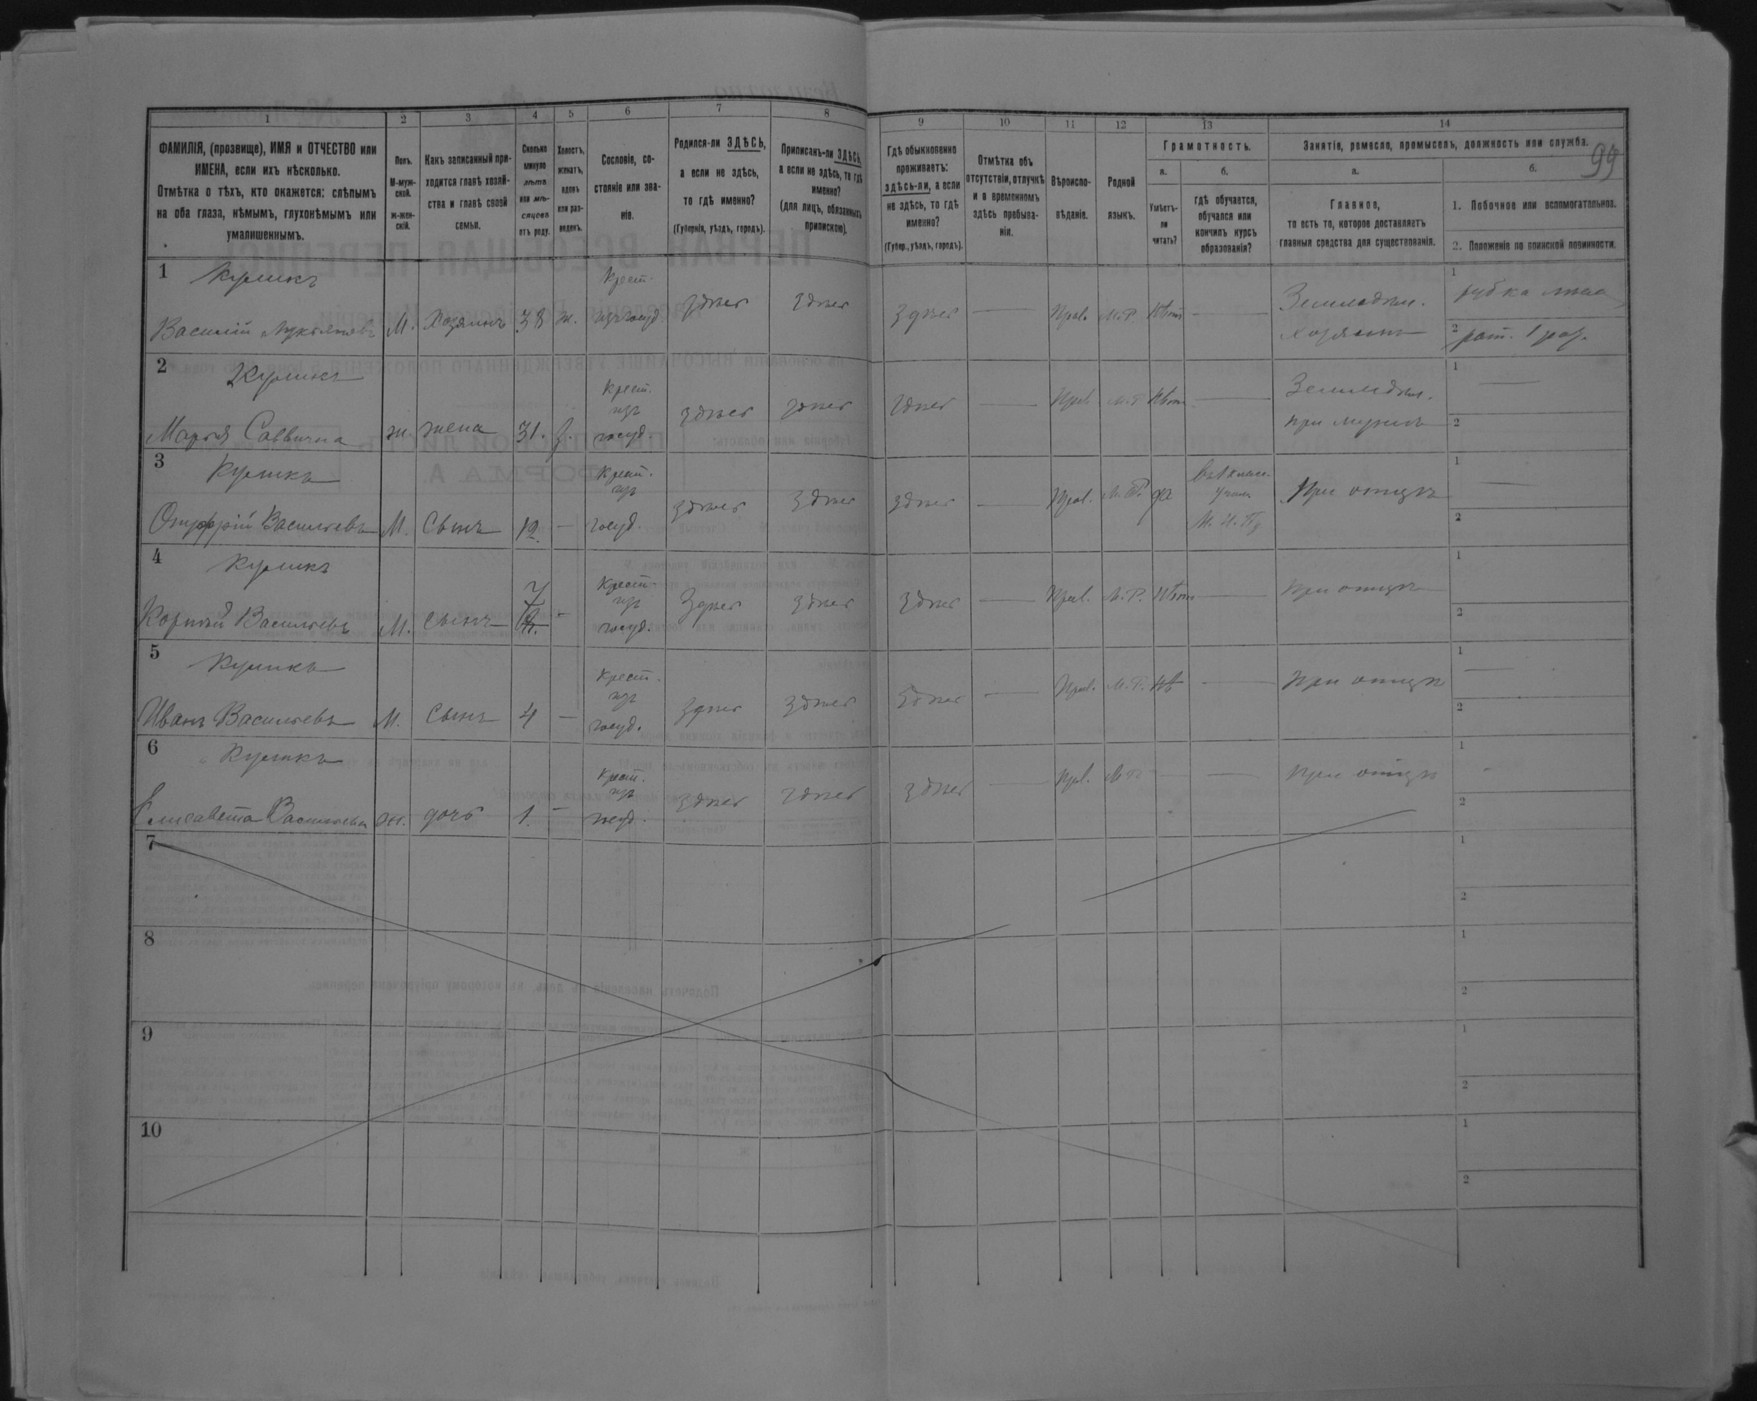 99
1 2 3 4 5 6 7 8 9 10 11 12 13 14
ФАМИЛІЯ, (прозвище), ИМЯ и ОТЧЕСТВО или
ИМЕНА, если ихъ нѣсколько.
Отмѣтка о тѣхъ, кто окажется: слѣпымъ
на оба глаза, нѣмымъ, глухонѣмымъ или
умалишеннымъ.
Полъ.
М-муж-
ской.
ж-жен-
скій.
Какъ записанный при-
ходится главѣ хозяй-
ства и главѣ своей
семьи.
Сколько
минуло
лѣтъ
или мѣ-
сяцевъ
отъ роду.
Холостъ,
женатъ,
вдовъ
или раз-
веденъ.
Сословіе, со-
стояніе или зва-
ніе.
Родился-ли ЗДѢСЬ,
а если не здѣсь,
то гдѣ именно?
(Губернія, уѣздъ, городъ).
Приписанъ-ли ЗДѢСЬ,
а если не здѣсь, то гдѣ
именно?
(для лицъ, обязанныхъ
припискою).
Гдѣ обыкновенно
проживаетъ:
здѣсь-ли, а если
не здѣсь, то гдѣ
именно?
(Губер., уѣздъ, городъ).
Отмѣтка объ
отсутствіи, отлучкѣ
и о временномъ
здѣсь пребыва-
ніи.
Вѣроиспо-
вѣданіе.
Родной
языкъ.
Грамотность.
а.
Умѣетъ-
ли
читать?
б.
гдѣ обучается,
обучался или
кончилъ курсъ
образованія?
Занятіе, ремесло, промыселъ, должность или служба.
а.
Главное,
то есть то, которое доставляетъ
главныя средства для существованія.
б.
1. Побочное или вспомогательное.
2. Положеніе по воинской повинности.
1 Куликъ
Василій Лукьяновъ М. Хозяинъ 38 ж. Крест. изъ госуд. здѣсь здѣсь здѣсь — Прав. М.Р. Нѣтъ — Земледѣл. Хозяинъ
1
2 рат. 1 раз.
2 Куликъ
Марья Саввична ж жена 31. з. Крест. изъ госуд. здѣсь здѣсь здѣсь — Прав. М.Р. Нѣтъ — Земледѣл. при мужѣ
1 —
2
3 Куликъ
Онуфрій Васильевъ М. Сынъ 12. — Крест. изъ госуд. здѣсь здѣсь здѣсь — Прав. М.Р. да При отцѣ
1 —
2
4 Куликъ
Корній Васильевъ М. сынъ 7 — Крест. изъ госуд. здѣсь здѣсь здѣсь — Прав. М.Р. Нѣтъ — при отцѣ
1
2
5 Куликъ
Иванъ Васильевъ М. Сынъ 4 — Крест. изъ госуд. здѣсь здѣсь здѣсь — Прав. М.Р. нѣ — при отцѣ
1 —
2
6 Куликъ
Елисавета Васильевна ж. дочь 1. — Крест. изъ госуд. здѣсь здѣсь здѣсь — Прав. — — при отцѣ
1 -
2
7
1
2
8
1
2
9
1
2
10
1
2